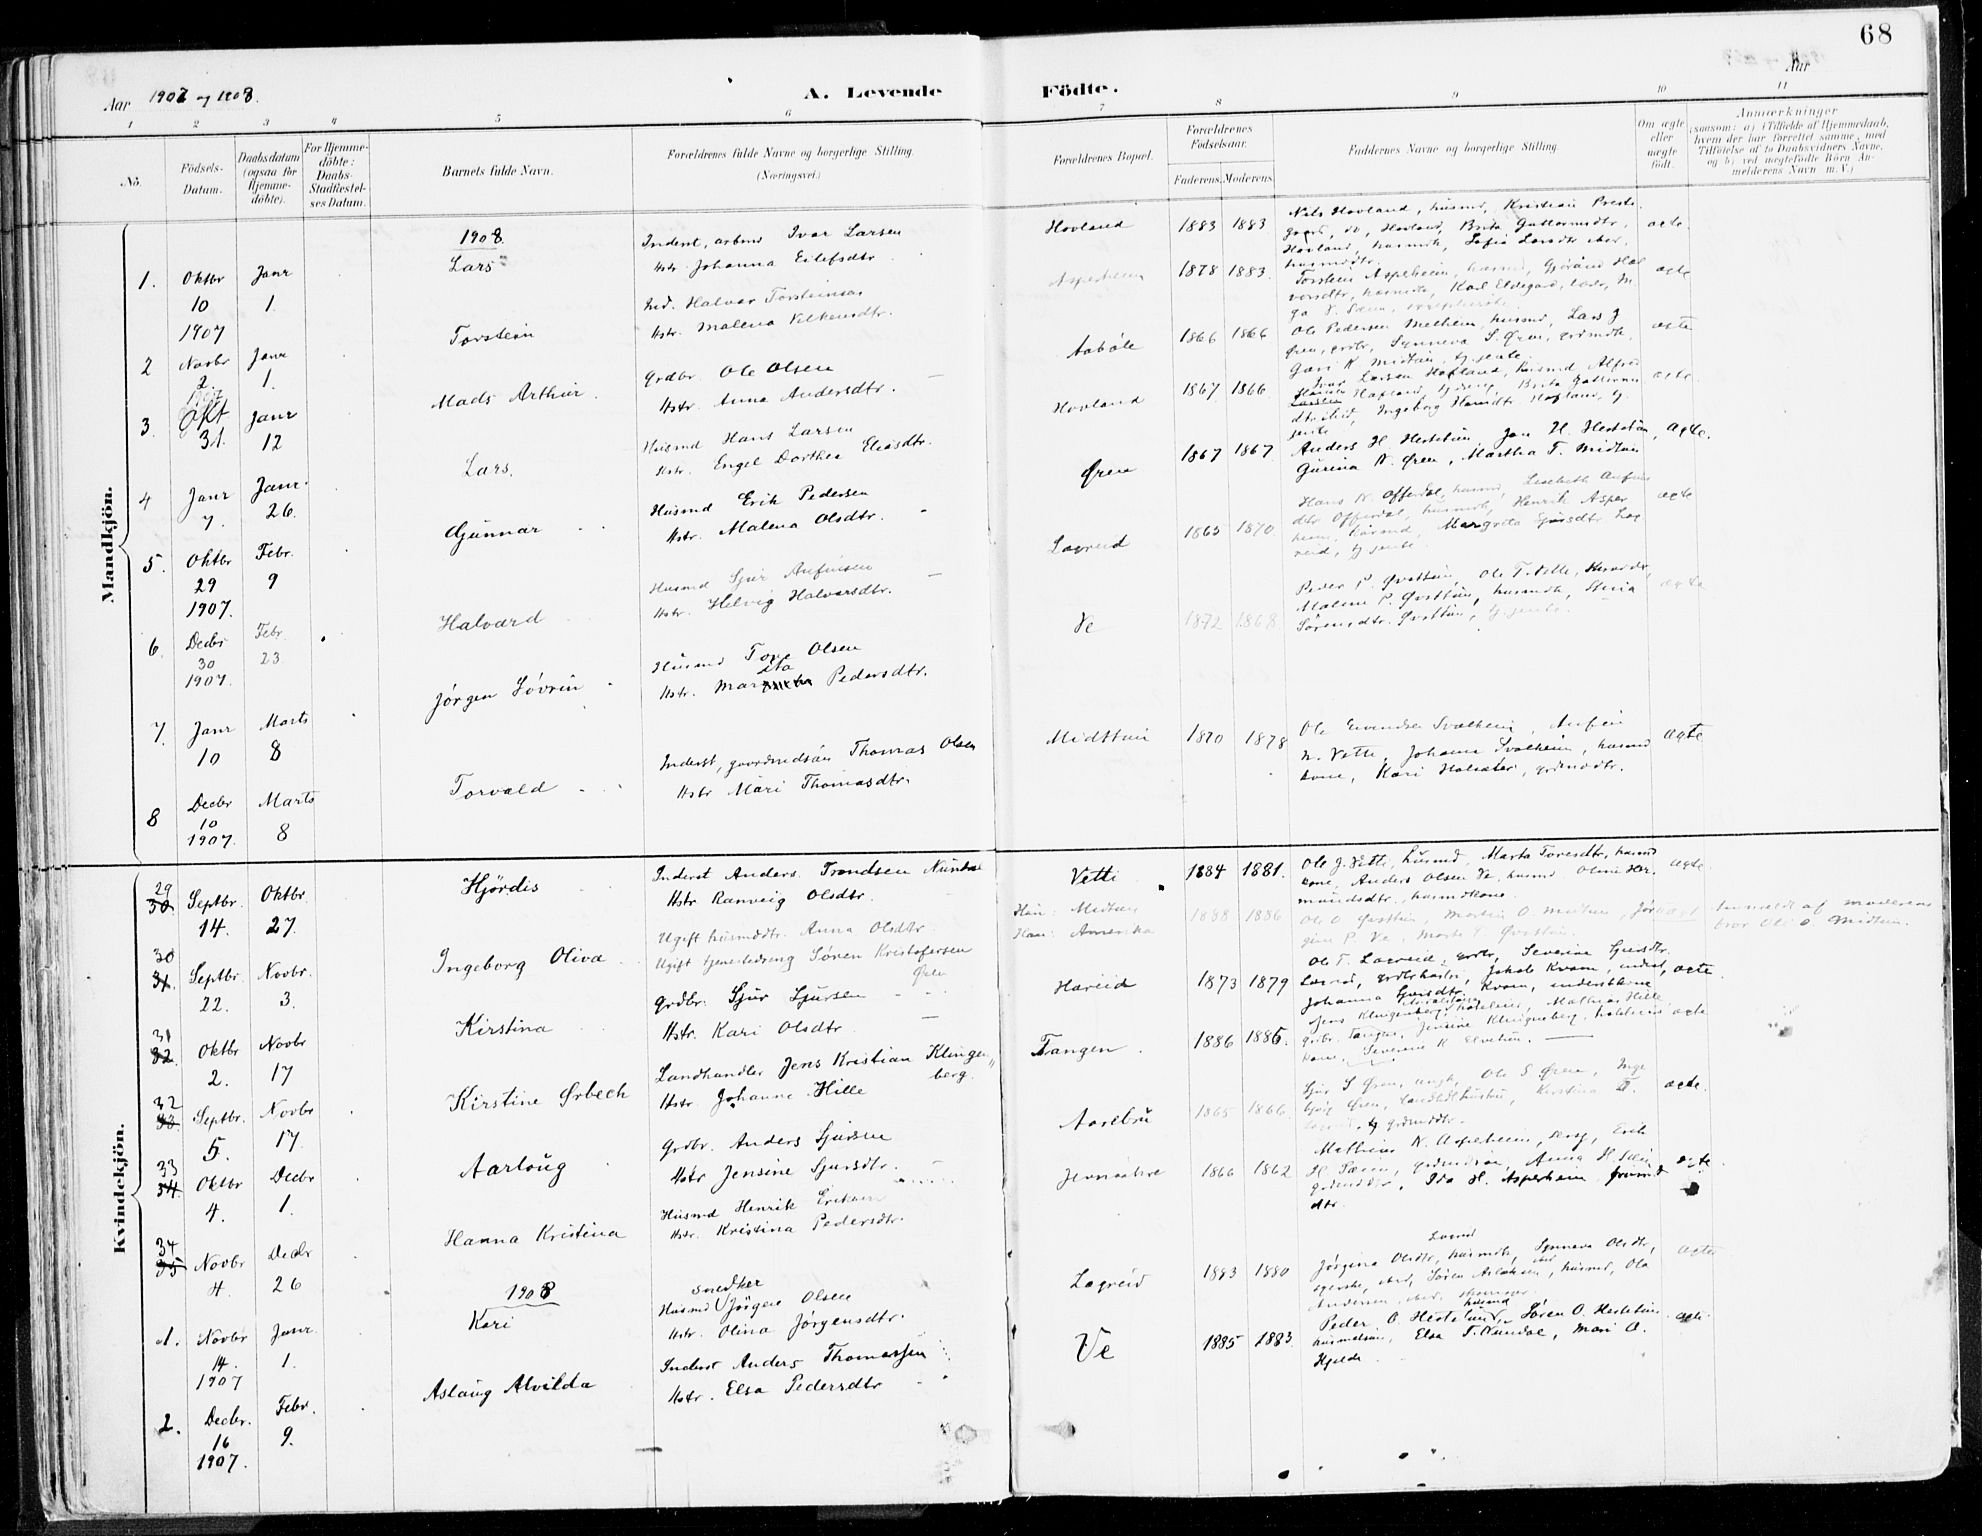 68
Aar 1907 og 1908.
A. Levende Födte.
Aar
1 2 3 4 5 6 7 8 9 10 11
No.
Födsels-Datum.
Daabsdatum (ogsaa för Hjemme-döbte).
For Hjemme-döbte: Daabs-Stadfæstel-ses Datum.
Barnets fulde Navn.
Forældrenes fulde Navne og borgerlige Stilling.
(Næringsvei.)
Forældrenes Bopæl.
Forældrenes Födselsaar.
Faderens. Moderens.
Faddernes Navne og borgerlige Stilling.
Om ægte eller uægte födt.
Anmærkninger
(saasom: a) i Tilfælde af Hjemmedaab, hvem der har forrettet samme, med Tilföielse af to Daabsvidners Navne, og b) ved uægtefödte Börn Anmelderens Navn m. V.)
Mandkjön.
1908.
1. Oktbr 10 1907 Janr 1. Lars
Inderst, arbmd Ivar Larsen
Hstr. Johanna Eilefsdtr.
Hovland 1883 1883
Nils Hovland, husmd, Kristian Preste-
gaard, do, Hovland, Brita Guttormsdtr,
Hovland, husmdk, Sofia Larsdtr ibid,
husmdtr. ægte.
2 Novbr 2. 1907 Janr 1. Torstein
Ind. Halvor Torsteinsen
Hstr. Malena Vilkensdtr.
Asperheim 1878 1883.
Torstein Aspeheim, husmd, Gjørånd Hal
vorsdtr, husmdk, Karl Eldegard, ægte
3. Okt 31. Janr 12 Mads Arthur.
Grdbr. Ole Olsen
Hstr. Anna Andersdtr.
Aabøle 1866 1866
Ole Pedersen Melheim, husmd, Lars J
Øren, grdbr, Synneva S. Øren, grdmdk,
Guri K Midtun, tj.jente. ægte
4 Janr 7. Janr. 26. Lars.
Husmd Hans Larsen
Hstr. Engel Dorthea Eliasdtr.
Hovland 1867 1866
Ivar Larsen Hofland, husmd, Alfred
Hansen Hofland, tj.dreng, Brita Guttorms
dtr ibid, Ingeborg Hansdtr Hofland, tj.
jente ægte.
5. Oktbr 29 1907. Febr. 9 Gunnar
Husmd Erik Pedersen
Hstr. Malena Olsdtr.
Øren 1867 1867
Anders H Hestetun, Jon H. Hestetun,
Gurina N. Øren, Martha T. Midtun ægte.
6. Decbr 30 1907. Febr 23. Halvard
Husmd Sjur Anfinsen
Hstr. Helvig Halvorsdtr.
Lægreid 1865 1870
Hans N. Offerdal, husmd, Lisabeth Anfins
dtr Offerdal, husmdk, Henrik Asper
heim, husmd, Margrita Sjursdtr Læg
reid, tj.jente. ægte
7. Janr 10 Marts 8 Jørgen Søvrin
Husmd Tore Olsen
Hstr. Margita Pedersdtr.
Ve 1872 1868
Peder P. Øvsttun, Ole T. Ve,
Malene P. Øvsttun, husmdk, Stina
Sørensdtr. Øvsttun, tj.jente. ægte
8 Decbr 10 1907. Marts 8 Torvald
Inderst, gaardmdsøn Thomas Olsen
Hstr Mari Thomasdtr.
Midttun 1870 1878
Ole Eivendsen Svalheim, Anfin
N. Vetti, Johanna Svalheim, husmd
kone, Kari Holsæter, grdmdtr. ægte
Kvindekjön.
29 30 Septbr. 14. Oktbr. 27. Hjørdis
Inderst Anders Trondsen Nundal
Hstr Ranveig Olsdtr.
Vetti 1884 1881.
Ole J. Vetti, husmd, Marta Toresdtr, husmd
kone, Anders Olsen Ve, husmd Oline Her.
mundsdtr, husmdkone. ægte.
30 31. Septbr. 22. Novbr. 3. Ingeborg Oliva
Ugift husmddtr. Anna Olsdtr.
Ugift tjenestedreng Søren Kristofersen
Øren
Hun: Midtun
Han: Amerika 1888 1886
Ole O Øvsttun, Martin O. Midtun, Jør
gine P. Ve, Marta P. Øvsttun. uægte
Anmeldt af moderens bror Ole O Midtun.
31 32. Oktbr 2. Novbr 17 Kirstina
Grdbr. Sjur Sjursen
Hstr. Kari Olsdtr
Hæreid 1873 1879
Ole T. Lægreid, grdbr, Severine Sjursdtr.
Lægreid, grdbrhustru, Jakob Kvam, inderst,
Johanna Sjursdtr Kvam, inderstkone ægte.
32 33. Septbr. 5. Novbr 17. Kirstine Ørbech
Landhandler Jens Kristian Klingen
berg.
Hstr. Johanne Hille
Tangen. 1886 1885.
Jens Klingenberg, hoteleier, Mathias Hille,
grdbr. Tangen, Jensine Klingenberg, hoteleier
kone, Severine K Elvetun. ægte
33 34. Oktbr 4. Decbr 1. Aarlaug
Grdbr. Anders Sjursen
Hstr Jensine Sjursdtr.
Aarebru 1865 1866.
Sjur S Øren, ungk, Ole S Øren, Inge
bjørg Øren, Kristina T.
Lægreid, tj grdmddtr. ægte.
34 35 Novbr 4. Decbr 26 Hanna Kristina
Husmd Henrik Eriksen
Hstr. Kristina Pedersdtr.
1866 1862
Mathias N. Asperheim, Erik
H. Sæm, grdmdsøn, Anna H. Sæm
grdmddtr, Ida H. Asperheim, husmd
dtr. ægte.
1908
1. Novbr 14. 1907 Janr. 1. Kari
snedker
Husmd Jørgen Olsen
Hstr. Olina Jørgensdtr.
Lægreid 1883 1880
Jørgina Olsdtr, husmdk, Synneva Olsdtr,
Søren Aslaksen, husmd, Ola
Andersen ægte
2. Decbr. 16 1907. Febr. 9. Aslaug Alvilda
Inderst Anders Thomassen
Hstr. Elsa Pedersdtr
Ve 1885 1883
Peder O. Hestetun, husmd, Søren O. Hestetun
husmdsøn, Elsa T. Nundal, Mari A.
Hjelde. ægte.